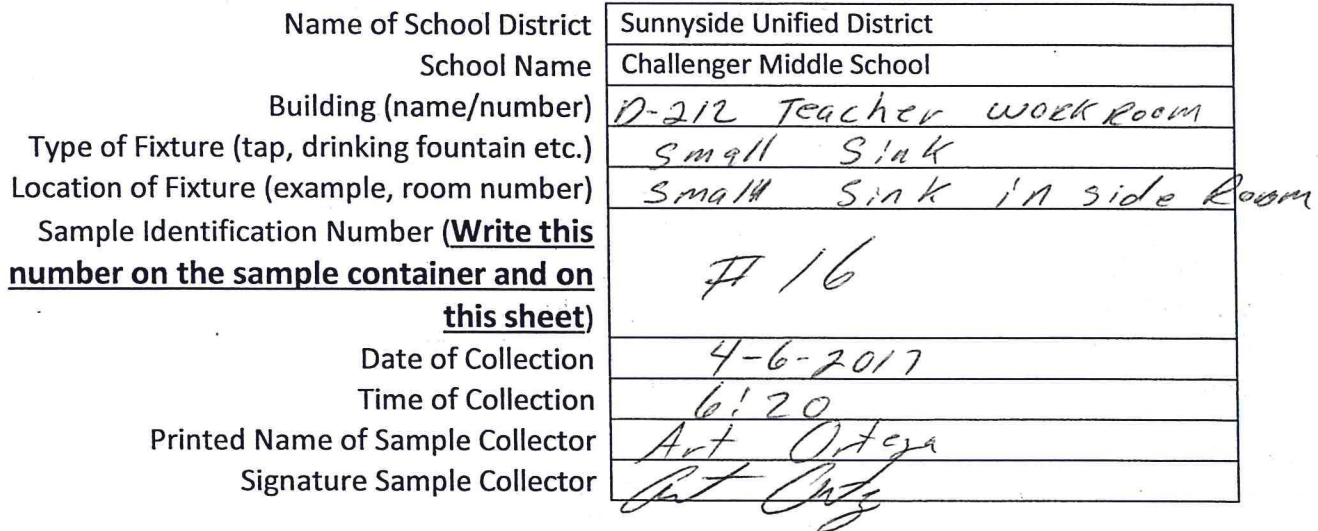 Name of School District Sunnyside Unified District
School Name Challenger Middle School
Building (name/number) D-212 Teacher WORK Room
Type of Fixture (tap, drinking fountain etc.) Small Sink
Location of Fixture (example, room number) Small Sink in side Room
Sample Identification Number (Write this
number on the sample container and on
this sheet)
# 16
Date of Collection 4-6-2017
Time of Collection 6:20
Printed Name of Sample Collector Art Ortega
Signature Sample Collector Art